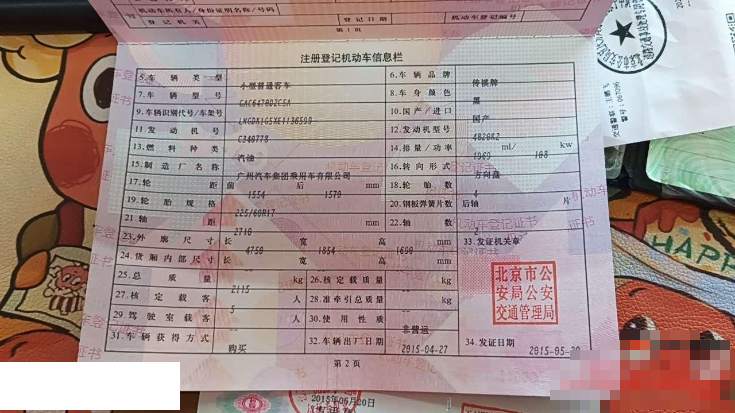 机动车所有人/身份证明名称/号码
登记机关 登记日期 机动车登记编号
第1页
注册登记机动车信息栏
5.车辆类型 小型普通客车 6.车辆品牌 传祺牌
7.车辆型号 GAC6470D2C5A 8.车身颜色 黑
9.车辆识别代号/车架号 10.国产/进口 国产
11.发动机号 C340778 12.发动机型号 4B20K2
13.燃料种类 汽油 14.排量/功率 ml/ kw
15.制造厂名称 广州汽车集团乘用车有限公司 16.转向形式 方向盘
17.轮距 前 1554 后 1570 mm 18.轮胎数 4
19.轮胎规格 225/60R17 20.钢板弹簧片数 后轴 片
21.轴距 2710 mm 22.轴数 2
23.外廓尺寸 长 4750 宽 1854 高 1690 mm 33.发证机关章
24.货厢内部尺寸 长 宽 高 mm
25.总质量 2115 kg 26.核定载质量 kg
27.核定载客 5 人 28.准牵引总质量 kg
29.驾驶室载客 人 30.使用性质 非营运
31.车辆获得方式 购买 32.车辆出厂日期 2015-04-27 34.发证日期
北京市公
安局公安
交通管理局
第2页
HAPP